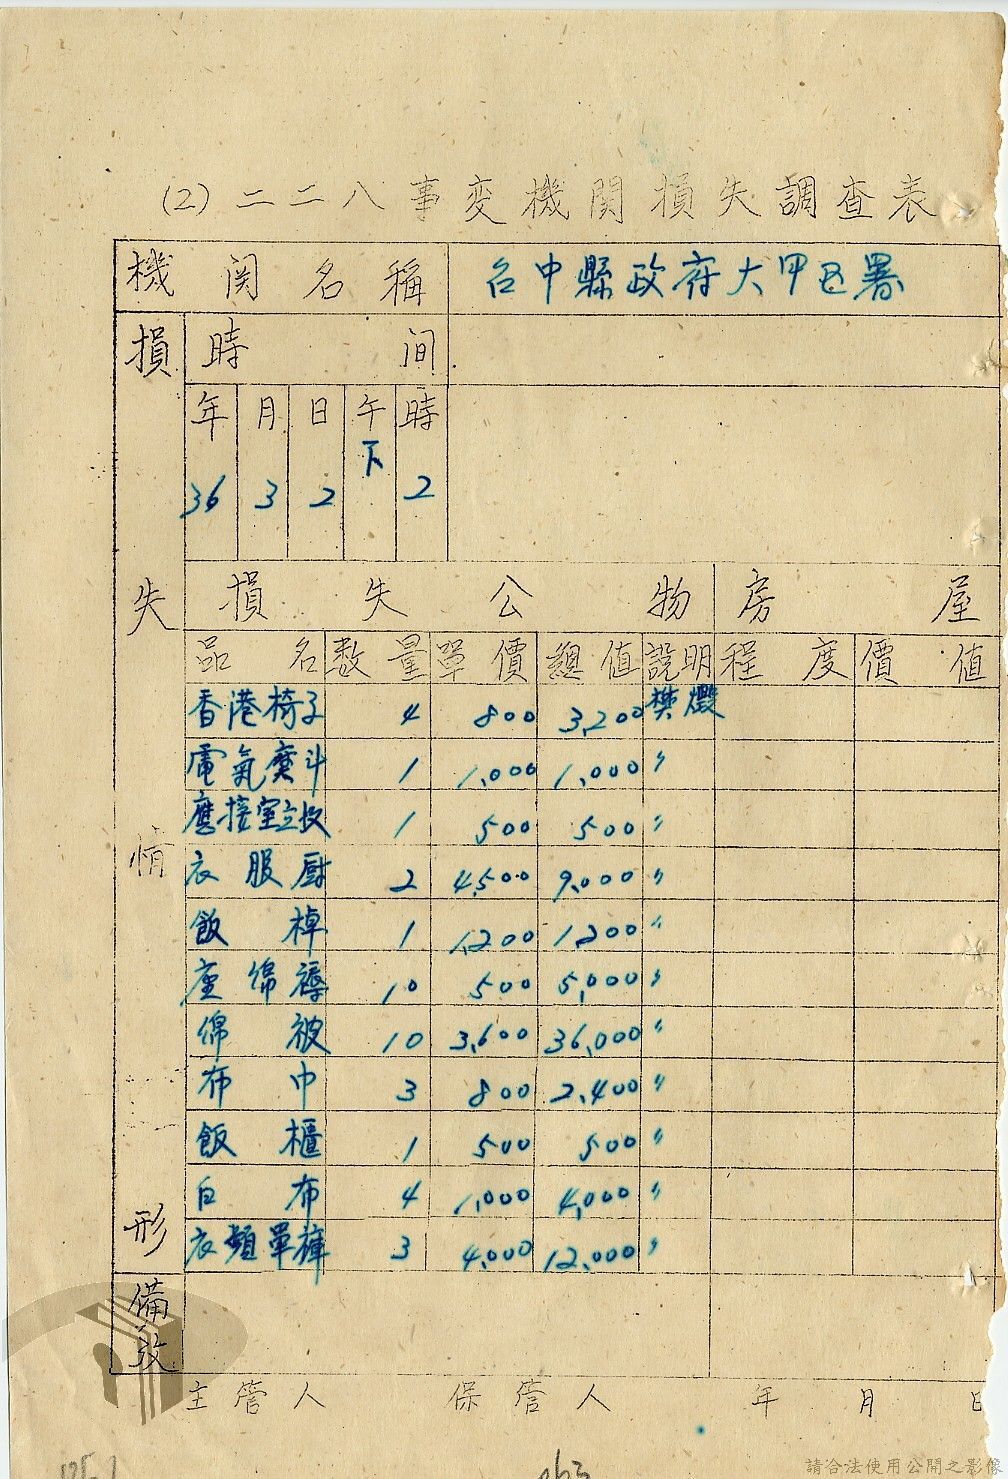 (2)二二八事变機関損失調查表
機関名稱 台中縣政府大甲区署
損失情形
時间
年 月 日 午 時
36 3 2 下 2
損失公物 房屋
品名 数量 單價 總值 說明 程度 價值
香港椅子 4 800 3,200 焚燬
電氣熨斗 1 1,000 1,000 〃
應接室 1 500 500 〃
衣服厨 2 4,500 9,000 〃
飯棹 1 1,200 1,200 〃
座綿褥 10 500 5,000 〃
綿被 10 3,600 36,000 〃
布巾 3 800 2,400 〃
飯櫃 1 500 500 〃
白布 4 1,000 4,000 〃
衣類單褲 3 4,000 12,000 〃
備攷
主管人 保管人 年 月 日
請合法使用公開之影像